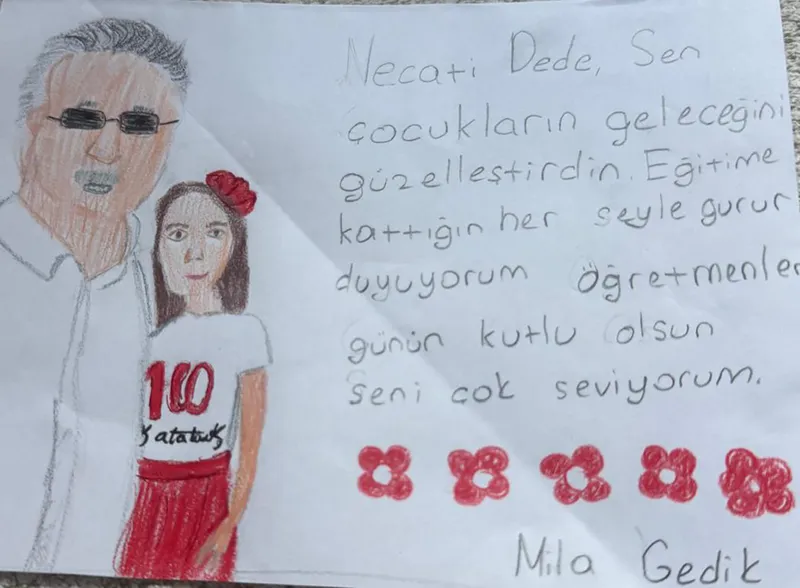 Necati Dede, Sen
çocukların geleceğini
güzelleştirdin. Eğitime
kattığın her seyle gurur
duyuyorum öğretmenler
günün kutlu olsun
seni çok seviyorum.
100
atatürk
Mila Gedik